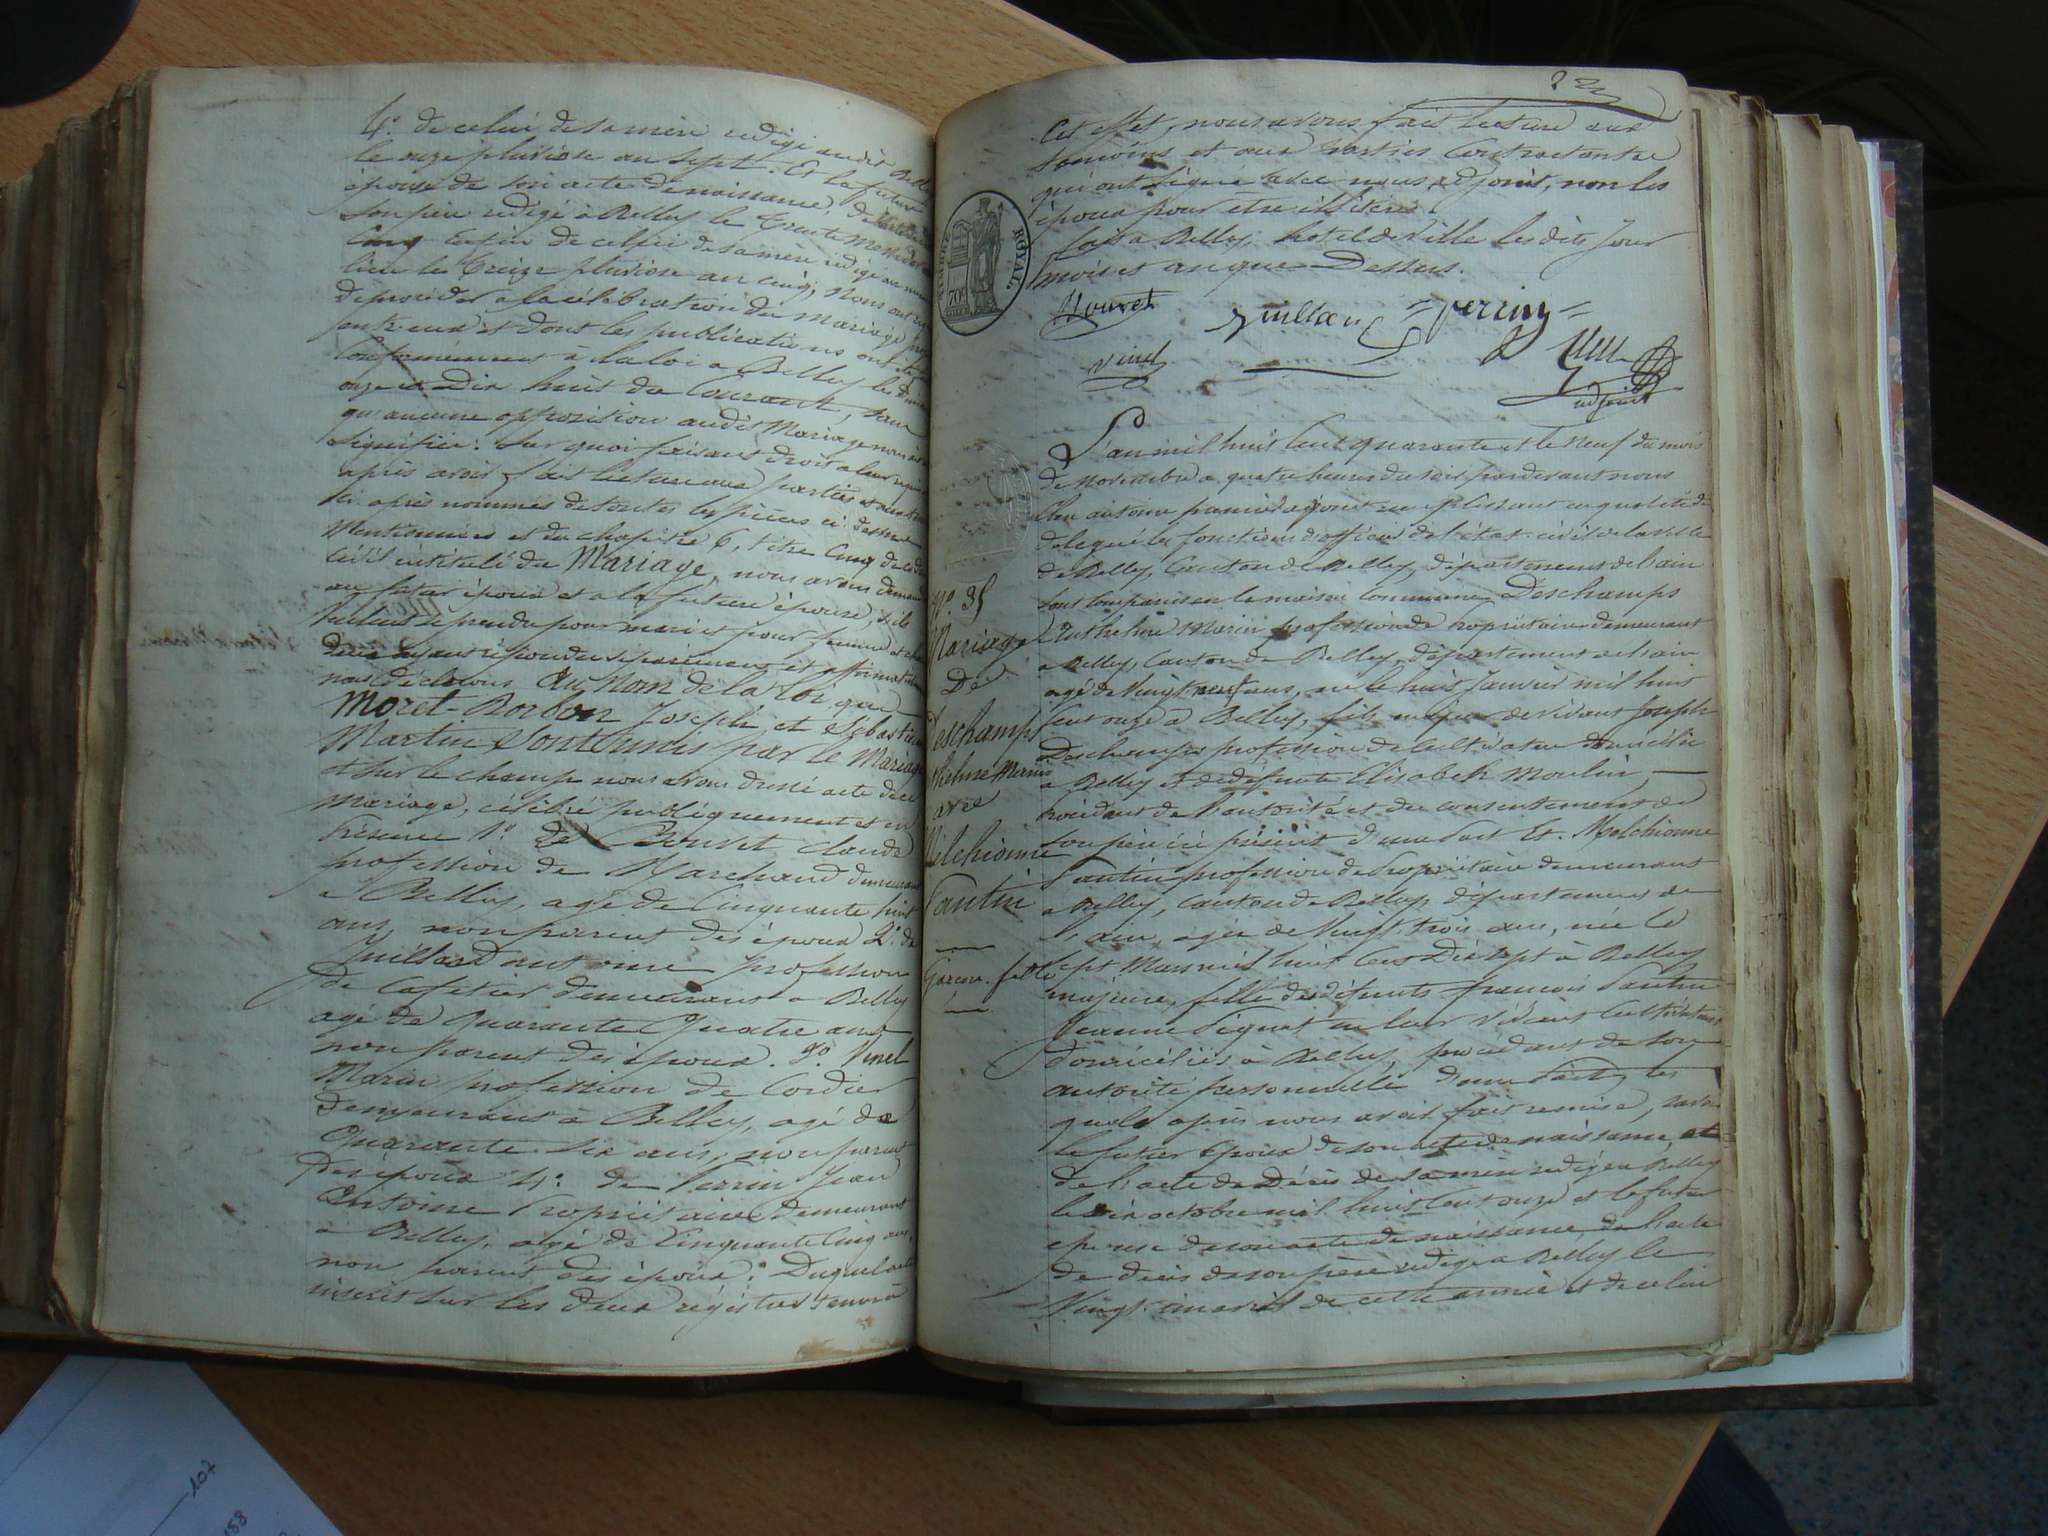 4°. de celui de sa mère rédigé audit Belley
le onze pluviose an sept. Et la future
épouse de son acte de naissance, de
son père rédigé à Belley le trente Messidor
Cinq Enfin de celui de sa mère rédigé au même
lieu le treize pluviose an cinq, Nous ont
de procéder à la célébration du mariage
entre eux et dont les publications ont été
Conformément à la loi a Belley les
onze et Dix huit du Courant, sans
qu'aucune opposition audit Mariage nous ait
signifiée. Sur quoi faisant droit a leur
après avoir fait lecture aux parties et aux
ci après nommés de toutes les pièces ci dessus
Mentionnées et du chapitre 6, titre Cinq du Code
Civil intitulé du Mariage, nous avons demandé
au futur époux et a la future épouse, s'ils
Veulent se prendre pour mari et pour femme et
deux ayant répondu séparément et affirmativement
nous déclarons Au Nom de la Loi, que
Moret-Borbon Joseph et Sébastienne
Martin sont unis par le Mariage
et sur le champ nous avons dressé acte de ce
Mariage, célébré publiquement et en
Présence 1°. de Bouvet Claude
profession de Marchand demeurant
a Belley, agé de Cinquante huit
ans, non parent des époux 2°. de
Juillard antoine profession
de Cafetier demeurant a Belley
agé de Quarante Quatre ans
non parent des époux. 3°. Vinel
Marin profession de Cordier
demeurant à Belley, agé de
Quarante six ans, non parent
des époux 4°. de Perrin Jean
Antoine Propriétaire demeurant
a Belley, agé de Cinquante Cinq ans,
non parent des époux. Duquel acte
inscrit sur les deux régistres tenus à
cet effet, nous avons fait lecture aux
temoins et aux parties Contractantes
qui ont signé avec nous adjoint, non les
époux pour etre illiterés.
fait a Belley, hotel de Ville les dits Jour
mois et an que Dessus.
TIMBRE ROYAL
70c
Bouvet Juillard Perrin
Vinel
adjoint
L'an mil huit Cent quarante et le Neuf du mois
de novembre a quatre heures du soir pardevant nous
adjoint remplissant en qualité de
délégué les fonctions d'officier de l'état-civil de la ville
de Belley, Canton de Belley, département de l'ain
sont comparus en la maison commune Deschamps
Anthelme Marin profession de Propriétaire demeurant
a Belley, Canton de Belley, département de l'ain
agé de Vingt neuf ans, né le huit Janvier mil huit
Cent onze à Belley, fils majeur de vivant Joseph
Deschamps profession de Cultivateur domicilié
a Belley et de défunte Elisabeth Moulin,
Procédant de l'autorité et du consentement de
son père ici présent d'une part Et. Melchionne
Pantin profession de Propriétaire demeurant
a Belley, Canton de Belley, département de
l'ain, agée de Vingt trois ans, née le
sept Mars mil huit Cent Dix sept à Belley
majeure, fille des défunts françois Pantin
Jeanne en leur vivant Cultivateurs
domiciliés à Belley, procédant de son
autorité personnelle d'une part, les
quels après nous avoir fait remise, savoir
le futur époux de son acte de naissance, et
de l'acte de Décès de sa mère rédigé a Belley
le six octobre mil huit Cent onze et la future
epouse de son acte de naissance, de l'acte
de décès de son père rédigé a Belley le
Vingt cinq avril de cette année et de celui
N°. 35
Mariage
De
Deschamps
Anthelme Marin
avec
Melchionne
Pantin
Garçon. fille